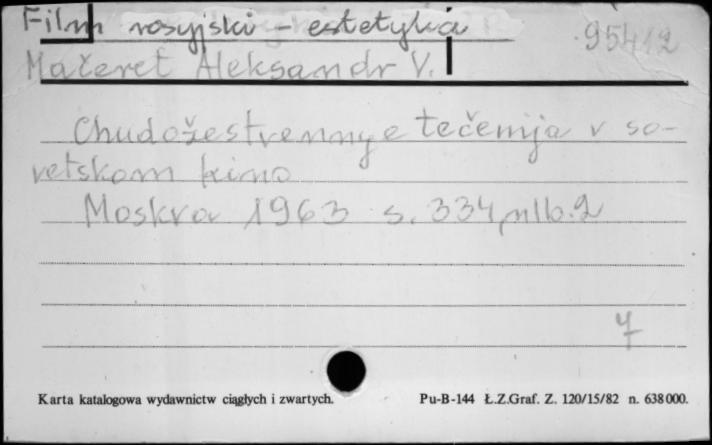 Film rosyjski - estetyka
95412
Mačeret Aleksandr V.
Chudožestvennye tečenija v so-
vetskom kino
Moskva 1963 s. 334, nlb. 2
4
Karta katalogowa wydawnictw ciągłych i zwartych. Pu-B-144 Ł.Z.Graf. Z. 120/15/82 n. 638000.